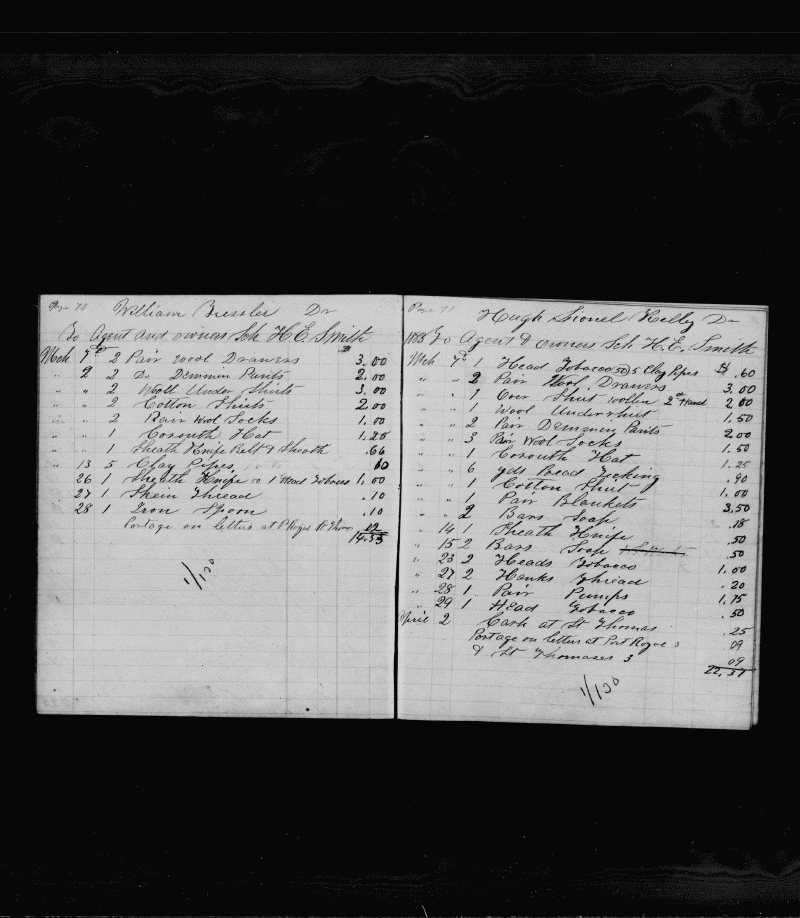 Page 70
William Bressler Dr
To Agent and owners Sch H.E. Smith
Mch 7th 2 Pair wool Drawers 3.00
" 9 2 Do Demmin Pants 2.00
" " 2 Woll Under Shirts 3.00
" " 2 Cotton Shirts 2.00
" " 2 Pair Wool Socks 1.00
" " 1 Cosouth Hat 1.25
" " 1 Sheath Knife Belt & Sheath .66
" 13 5 Clay Pipes 10
26 1 Sheath Knife 50 1 Head Tobacco 1.00
27 1 Skein Thread .10
28 1 Iron Spoon .10
Portage on letters at P Royal & St Thomas 12
14.33
1/130
Page 71
Hugh Lionel Reilly Dr
1888 To Agent & owners Sch H.E. Smith
Mch 7th 1 Head Tobacco 50 5 Clay Pipes .60
" " 2 Pair Wool Drawers 3.00
" " 1 Over Shirt wollen 2nd Hand 2.00
" " 1 Wool Undershirt 1.50
" " 2 Pair Demmin Pants 2.00
" " 3 Pair Wool Socks 1.50
" " 1 Cosouth Hat 1.25
" " 6 yds Bead Ticking .90
" " 1 Cotton Shirt 1.00
" " 1 Pair Blankets 3.50
" " 2 Bars Soap .18
" 14 1 Sheath Knife .50
" 15 2 Bars Soap .50
" 23 2 Heads Tobacco 1.00
" 27 2 Hanks Thread .20
" 28 1 Pair Pumps 1.75
" 29 1 Head Tobacco .50
April 2 Cash at St Thomas .25
Portage on letters at Port Royal 3 09
& St Thomases 3 09
22.31
1/130